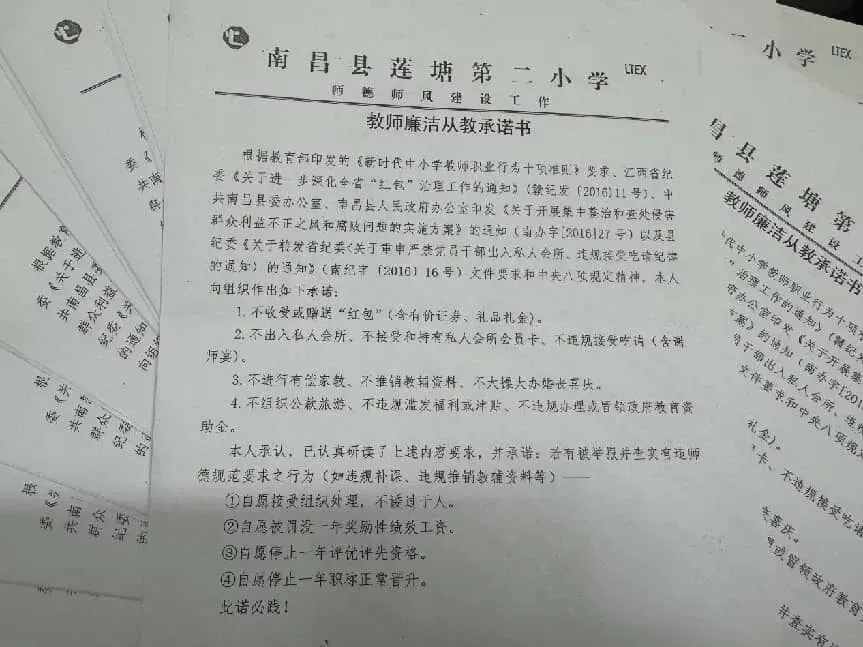 南昌县莲塘第二小学 LTEX
师德师风建设工作
教师廉洁从教承诺书
根据教育部印发的《新时代中小学教师职业行为十项准则》要求、江西省纪
委《关于进一步深化全省“红包”治理工作的通知》（赣纪发〔2016〕11号）、中
共南昌县委办公室、南昌县人民政府办公室印发《关于开展集中整治和查处侵害
群众利益不正之风和腐败问题的实施方案》的通知（南办字[2016]27号）以及县
纪委《关于转发省纪委<关于重申严禁党员干部出入私人会所、违规接受吃请纪律
的通知〉的通知》（南纪字〔2016〕16号）文件要求和中央八项规定精神，本人
向组织作出如下承诺：
1.不收受或赠送“红包”（含有价证券、礼品礼金）。
2.不出入私人会所、不接受和持有私人会所会员卡、不违规接受吃请（含谢
师宴）。
3.不进行有偿家教、不推销教辅资料、不大操大办婚丧喜庆。
4.不组织公款旅游、不违规滥发福利或津贴、不违规办理或冒领政府教育资
助金。
本人承认，已认真研读了上述内容要求，并承诺：若有被举报并查实有违师
德规范要求之行为（如违规补课、违规推销教辅资料等）——
①自愿接受组织处理，不诿过于人。
②自愿被罚没一年奖励性绩效工资。
③自愿停止一年评优评先资格。
④自愿停止一年职称正常晋升。
此诺必践！
二小学 LTEX
昌县莲塘第
师德师风建设工
教师廉洁从教承诺书
代中小学教师职业行为十项
治理工作的通知》（赣纪发
办公室印发《关于开展集
案》的通知（南办字[201
文件要求和中央八项规
礼金）。
卡、不违规接受吃请
喜庆。
或冒领政府教育资
并查实有